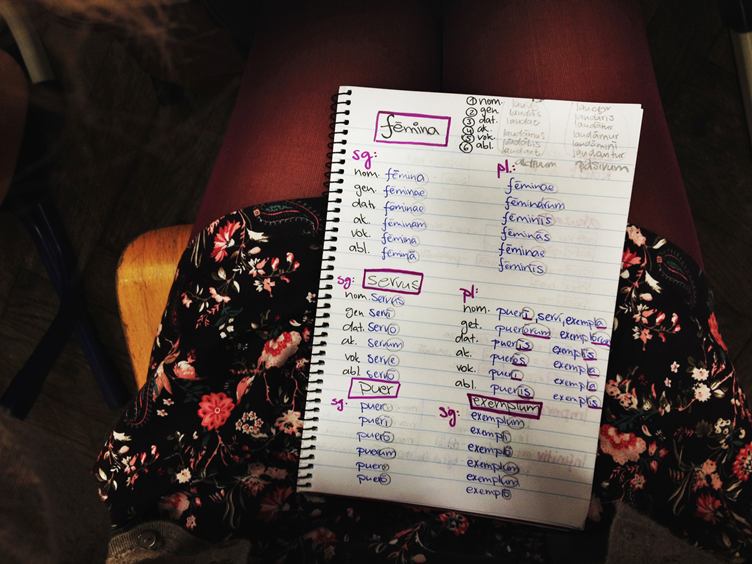 fēmina
① nom.
② gen.
③ dat.
④ ak.
⑤ vok.
⑥ abl.
laudās laudāris
laudat laudātur
laudāmus laudāmur
laudātis laudāmini
laudantur
aktivum pasivum
sg:
nom. fēmina
gen. fēminae
dat. fēminae
ak. fēminam
vok. fēmina
abl. fēminā
pl:
fēminae
fēminārum
fēminīs
fēminās
fēminae
fēminīs
sg: servus
nom. servus
gen servī
dat. servō
ak. servum
vok serve
abl. servō
pl:
nom. puerī, servī, exempla
get. puerōrum exemplōrum
dat. puerīs exemplīs
ak. puerōs exempla
vok. puerī exempla
abl. puerīs exemplīs
puer
sg: puer
puerī
puerō
puerum
puer
puerō
exemplum
sg: exemplum
exemplī
exemplō
exemplum
exemplum
exemplō